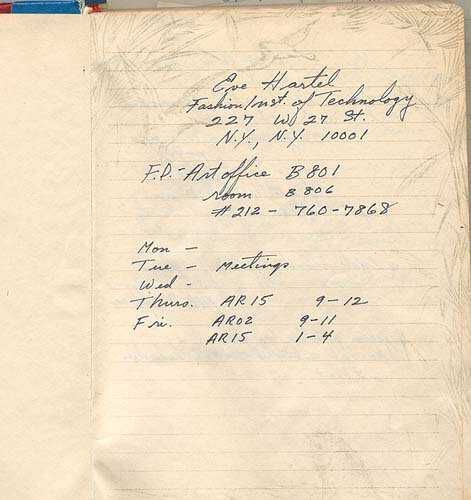 Eve Hartel
Fashion Inst. of Technology
227 W 27 St.
N.Y., N.Y. 10001
F.D.- Art office B801
room B 806
#212 - 760-7868
Mon -
Tue - Meetings
Wed -
Thurs. AR15 9-12
Fri. AR02 9-11
AR15 1-4